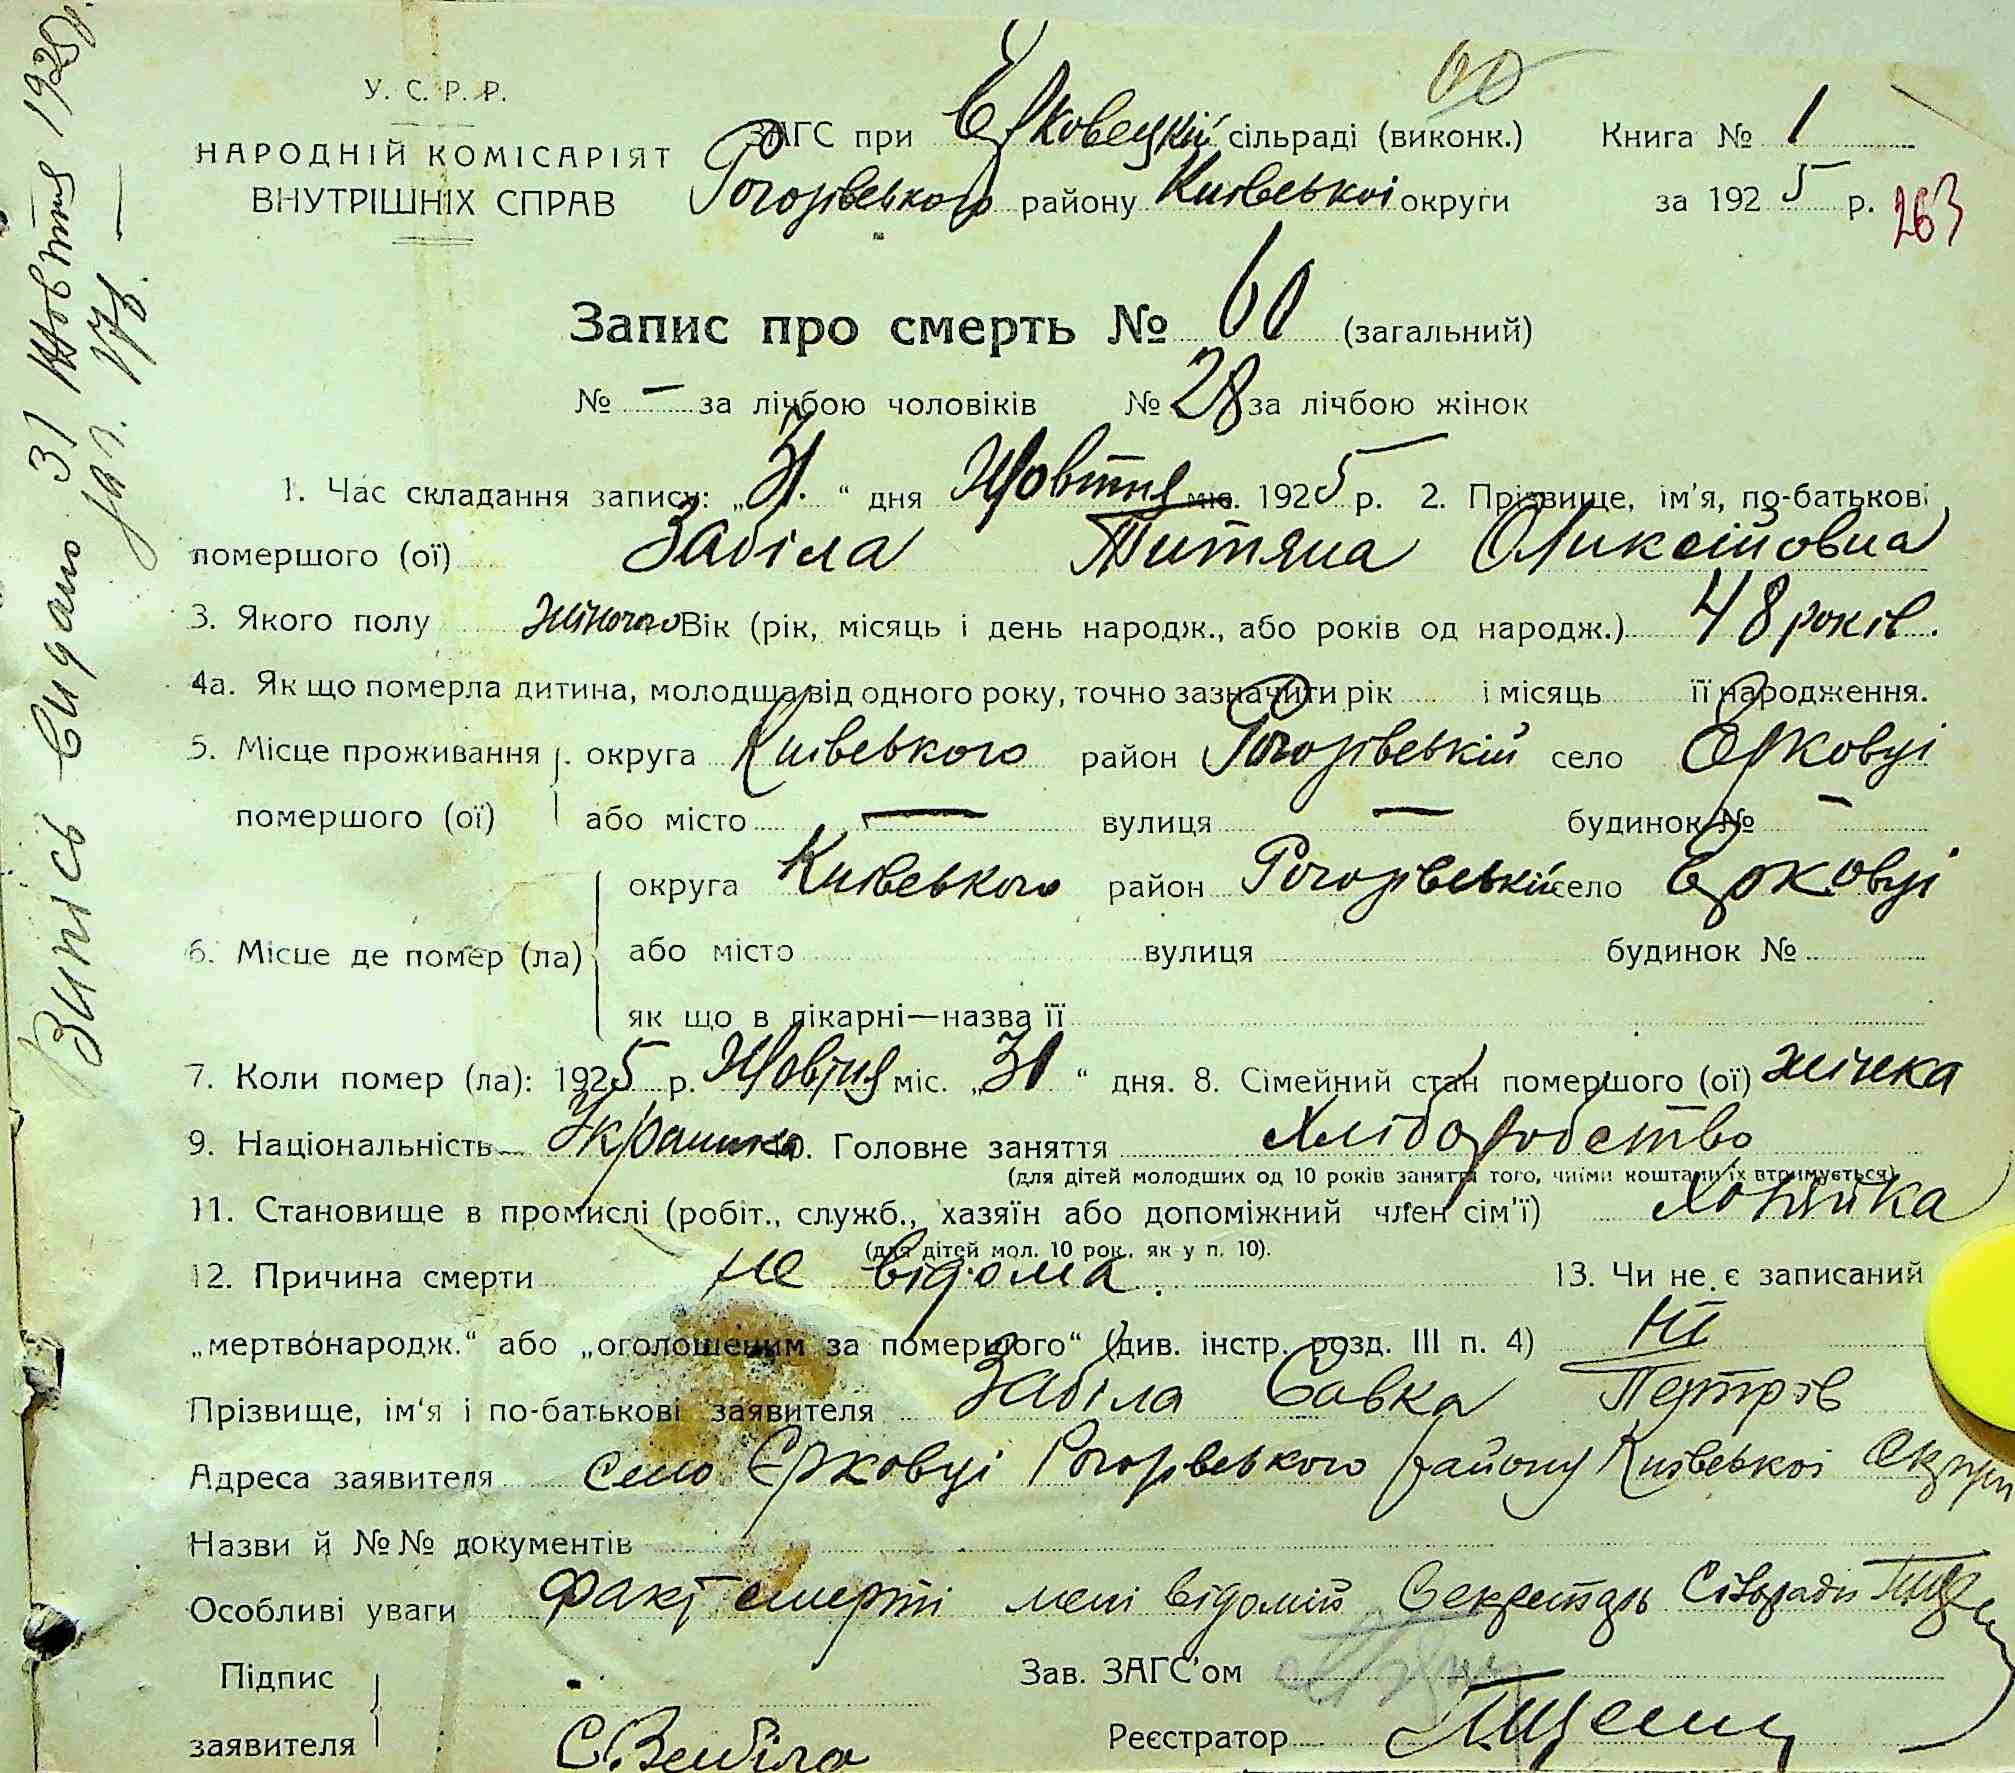 У. С. Р. Р.
НАРОДНІЙ КОМІСАРІЯТ
ВНУТРІШНІХ СПРАВ
60
ЗАГС при Єрковецкій сільраді (виконк.) Книга № 1
Рогозівського району Київської округи за 1925 р.
263
Запис про смерть № 60 (загальний)
№ — за лічбою чоловіків № 28 за лічбою жінок
1. Час складання запису: „31.“ дня Жовтня міс. 1925 р. 2. Прізвище, ім'я, по-батькові
помершого (ої) Забіла Титяна Оликсіймовна
3. Якого полу жіночого Вік (рік, місяць і день народж., або років од народж.) 48 років.
4а. Як що померла дитина, молодша від одного року, точно зазначити рік і місяць її народження.
5. Місце проживання округа Київського район Рогозівській село Єрковці
помершого (ої) або місто — вулиця — будинок № —
округа Київського район Рогозівській село Єрковці
6. Місце де помер (ла) або місто вулиця будинок №
як що в лікарні—назва її
7. Коли помер (ла): 1925 р. Жовтня міс. „31“ дня. 8. Сімейний стан помершого (ої) жінка
9. Національність 10. Головне заняття Хліборобство
(для дітей молодших од 10 років заняття того, чиїми коштами їх втримується)
11. Становище в промислі (робіт., служб., хазяїн або допоміжний член сім'ї) Хозяйка
(для дітей мол. 10 рок., як у п. 10).
12. Причина смерти не відома. 13. Чи не є записаний
„мертвонародж.“ або „оголошеним за помершого“ (див. інстр. розд. III п. 4) ні
Прізвище, ім'я і по-батькові заявителя Забіла Савка Петров
Адреса заявителя село Єрковці Рогозівського району Київської
Назви й №№ документів
Особливі уваги Факт смерті мені відомій Секретарь Сільради
Підпис Зав. ЗАГС'ом
заявителя С. Забіла Реєстратор
Випісь видано 31 Жовтня 1925 р.
за №